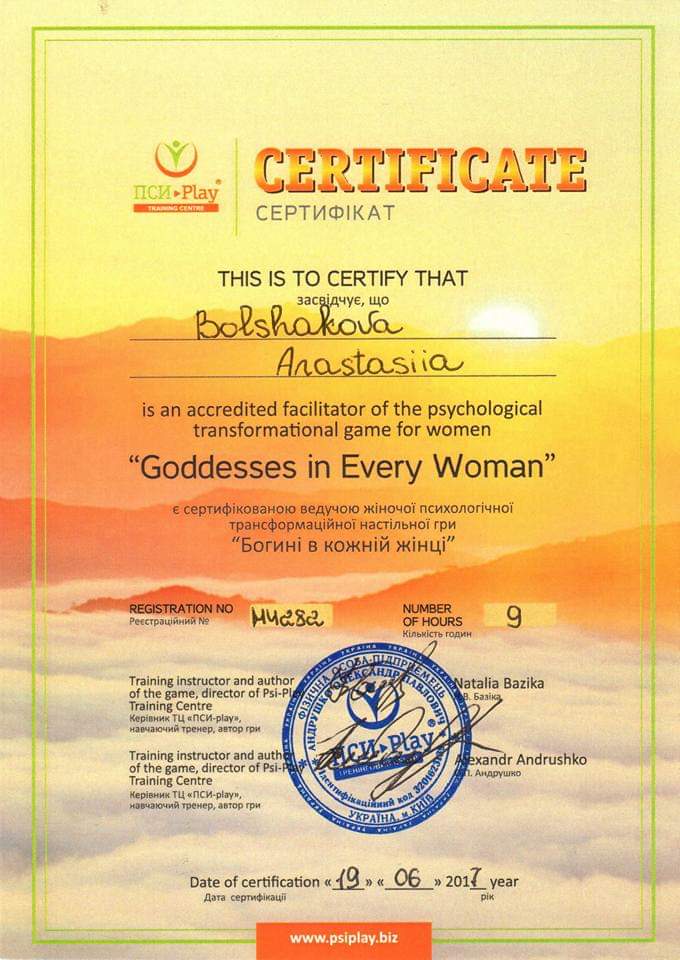 ПСИ Play
TRAINING CENTRE
CERTIFICATE
СЕРТИФІКАТ
THIS IS TO CERTIFY THAT
засвідчує, що
Bolshakova
Anastasiia
is an accredited facilitator of the psychological
transformational game for women
“Goddesses in Every Woman”
є сертифікованою ведучою жіночої психологічної
трансформаційної настільної гри
“Богині в кожній жінці”
REGISTRATION NO
Реєстраційний №
НЧ282
NUMBER
OF HOURS
Кількість годин
9
Training instructor and author
of the game, director of Psi-Play
Training Centre
Керівник ТЦ «ПСИ-play»,
навчаючий тренер, автор гри
Natalia Bazika
В. Базіка
Training instructor and author
of the game, director of Psi-Play
Training Centre
Керівник ТЦ «ПСИ-play»,
навчаючий тренер, автор гри
Alexandr Andrushko
П. Андрушко
ФІЗИЧНА ОСОБА-ПІДПРИЄМЕЦЬ
АНДРУШКО ОЛЕКСАНДР ПАВЛОВИЧ
ПСИ Play
Ідентифікаційний код
УКРАЇНА, м.КИЇВ
Date of certification «19» «06» 2017 year
Дата сертифікації рік
www.psiplay.biz